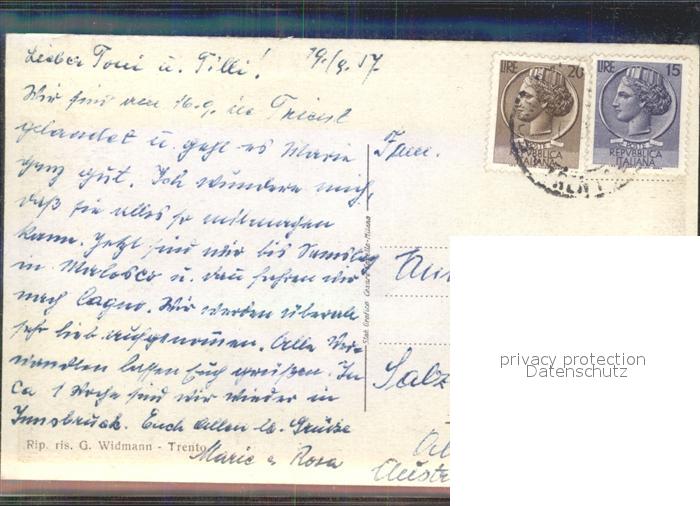 Lieber Toni u. Tilli! 19./9. 57.
Wir sind am 16.9. in Trient
gelandet u. geht es Marie
ganz gut. Ich wundere mich,
daß sie alles so mitmachen
kann. Jetzt sind wir bis Samstag
in Malosco u. dan fahren wir
nach Cagno. Wir werden überall
sehr lieb aufgenommen. Alle Ver-
wandten lassen Euch grüßen. In
ca 1 Woche sind wir wieder in
Innsbruck. Euch allen lb. Grüße
Marie u Rosa
Rip. ris. G. Widmann - Trento
LIRE 20
POSTE
REPVBBLICA
ITALIANA
LIRE 15
POSTE
REPVBBLICA
ITALIANA
Fam.
Salz
Austr
privacy protection
Datenschutz